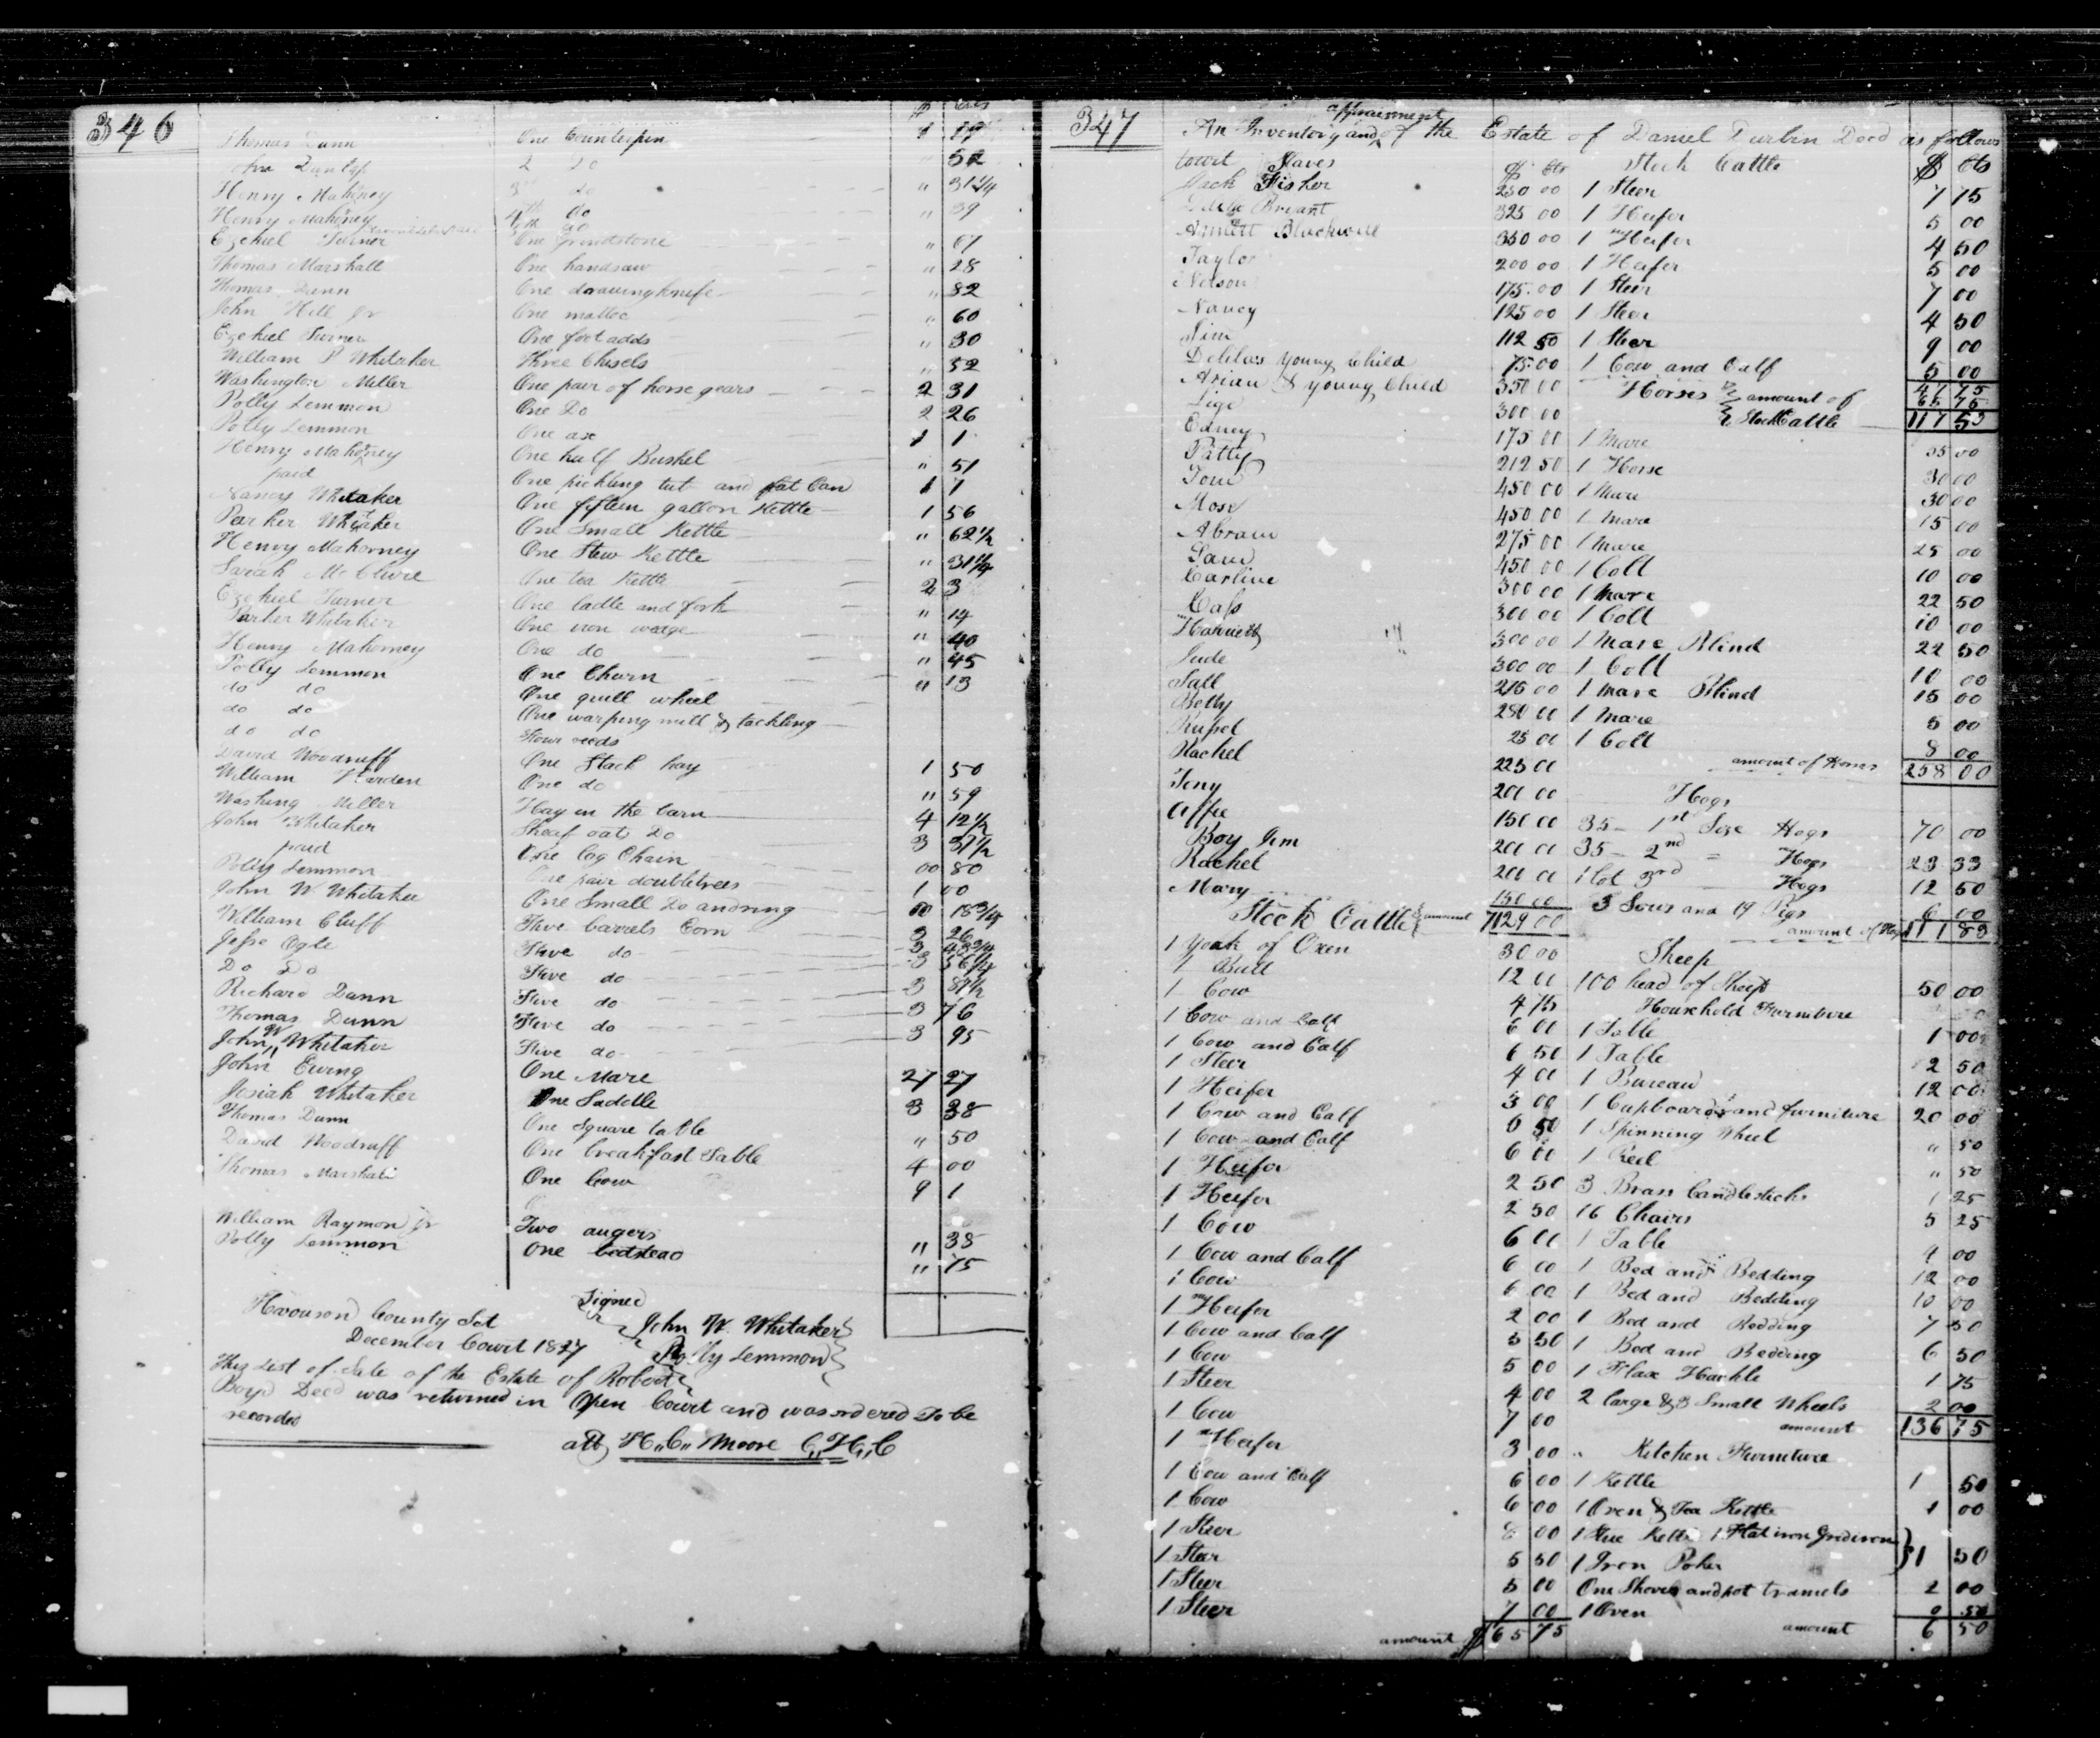 346
$ Cts
Thomas Dunn One Counterpin 1 19
John Dunlap 2 Do " 52
Henry Mahorney 3 do " 31 1/4
Henry Mahorney 4th do " 39
Ezekiel Turner One grindstone " 67
Thomas Marshall One handsaw " 28
Thomas Dunn One drawingknife " 82
John Hill Jr One mattoc " 60
Ezekiel Turner One foot adds " 30
William P Whitaker Three Chisels " 52
Washington Miller One pair of horse gears 2 31
Polly Lemmon One Do 2 26
Polly Lemmon One ax 1 1
Henry Mahorney One half Bushel " 51
paid One pickling tub and fat Can 1 7
Nancy Whitaker One fifteen gallon Kettle 1 56
Parker Whitaker One Small Kettle " 62 1/2
Henry Mahorney One Stew Kettle " 31 1/4
Sarah McClure One tea Kettle 2 3
Ezekiel Turner One ladle and fork " 14
Parker Whitaker One iron wedge " 40
Henry Mahorney One do " 45
Polly Lemmon One Churn " 13
do do One quill wheel
do do One warping mill & tackling
do do Four reeds
David Woodruff One Stack hay 1 50
William Harden One do " 59
Washing Miller Hay in the barn 4 12 1/2
John Whitaker Sheaf oats Do 3 37 1/2
paid One log Chain 00 80
Polly Lemmon One pair doubletrees 1 00
John W Whitaker One Small Do and ring 00 18 3/4
William Cluff Five barrels Corn 3 26
Jesse Ogle Five do 3 43 3/4
Do Do Five do 3 56 1/4
Richard Dann Five do 3 87 1/2
Thomas Dunn Five do 3 76
John W Whitaker Five do 3 95
John Ewing One Mare 27 27
Josiah Whitaker One Saddle 3 38
Thomas Dunn One Square table " 50
David Woodruff One breakfast Table 4 00
Thomas Marshall One Cow 9 1
William Raymon Jr Two augers " 38
Polly Lemmon One bedstead " 75
Signed
Harrison County Sct John W. Whitaker
December Court 1827 Polly Lemmon
This List of Sale of the Estate of Robert
Boyd Decd was returned in Open Court and was ordered To be
recorded
att H,,C,, Moore C,,H,,C
347
appraisment
An Inventory and of the Estate of Daniel Durbin Decd as follows
towit Slaves $ Cts Stock Cattle $ Cts
Jack Fisher 250 00 1 Steer 7 75
Bryant 325 00 1 Heifer 5 00
Blackwell 350 00 1 Heifer 4 50
Taylor 200 00 1 Heifer 5 00
Nelson 175 00 1 Steer 7 00
Nancy 125 00 1 Steer 4 50
Jim 112 50 1 Steer 9 00
Delilas young Child 75 00 1 Cow and Calf 5 00
Arian & young Child 350 00 Horses amount of 47 75
65 75
Lige 300 00 Stock Cattle 117 53
Edney 175 00 1 Mare 35 00
Patty 212 50 1 Horse 30 00
Tom 450 00 1 Mare 30 00
Mose 450 00 1 Mare 15 00
Abram 275 00 1 Mare 25 00
Sam 450 00 1 Colt 10 00
Carline 300 00 1 Mare 22 50
Cass 300 00 1 Colt 10 00
Harriett 300 00 1 Mare Blind 22 50
Jude 300 00 1 Colt 10 00
Sall 215 00 1 Mare Blind 15 00
Betty 250 00 1 Mare 5 00
Russel 25 00 1 Colt 8 00
Rachel 225 00 amount of Horses 258 00
Tony 200 00 Hogs
Affie 150 00 35 - 1st Size Hogs 70 00
Boy Jim 200 00 35 - 2nd = Hogs 23 33
Rachel 200 00 1 lot 3rd Hogs 12 50
Mary 150 00 3 Sows and 19 Pigs 6 00
Stock Cattle amount 7129 00 amount of Hogs 111 83
1 Yoak of Oxen 30 00 Sheep
1 Bull 12 00 100 head of Sheep 50 00
1 Cow 4 75 Household Furniture
1 Cow and Calf 6 00 1 Table 1 00
1 Cow and Calf 6 50 1 Table 2 50
1 Steer 4 00 1 Bureau 12 00
1 Heifer 3 00 1 Cupboard and furniture 20 00
1 Cow and Calf 6 50 1 Spinning Wheel " 50
1 Cow and Calf 6 00 1 Reel " 50
1 Heifer 2 50 3 Brass Candlesticks 1 25
1 Heifer 2 50 16 Chairs 5 25
1 Cow 6 00 1 Table 9 00
1 Cow and Calf 6 00 1 Bed and Bedding 12 00
1 Cow 6 00 1 Bed and Bedding 10 00
1 Heifer 2 00 1 Bed and Bedding 7 50
1 Cow and Calf 5 50 1 Bed and Bedding 6 50
1 Cow 5 00 1 Flax Hackle 1 75
1 Steer 4 00 2 large & 3 Small Wheels 2 00
1 Cow 7 00 amount 136 75
1 Heifer 3 00 Kitchen Furniture
1 Cow and Calf 6 00 1 Kettle 1 50
1 Cow 6 00 1 Oven & Tea Kettle 1 00
1 Steer 8 00 1 Stue Kettle 1 Flat iron Gridiron
1 Steer 5 50 1 Iron Poker 1 50
1 Steer 5 00 One Shovel and pot tramels 2 00
1 Steer 7 00 1 Oven 0 50
amount $ 65 75 amount 6 50